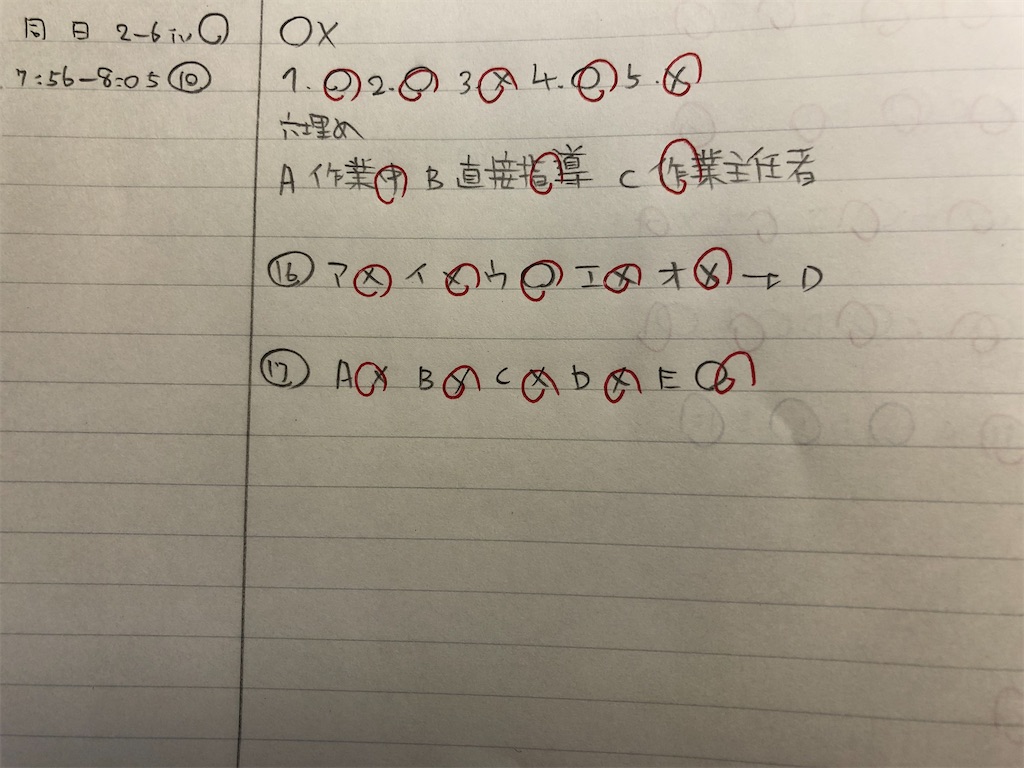 同日 2-6 iv ○
7:56-8:05 ⑩
○×
1. ○ 2. ○ 3 × 4. ○ 5. ×
穴埋め
A 作業中 B 直接指導 C 作業主任者
⑯ ア × イ × ウ ○ エ × オ × → D
⑰ A × B × C × D × E ○